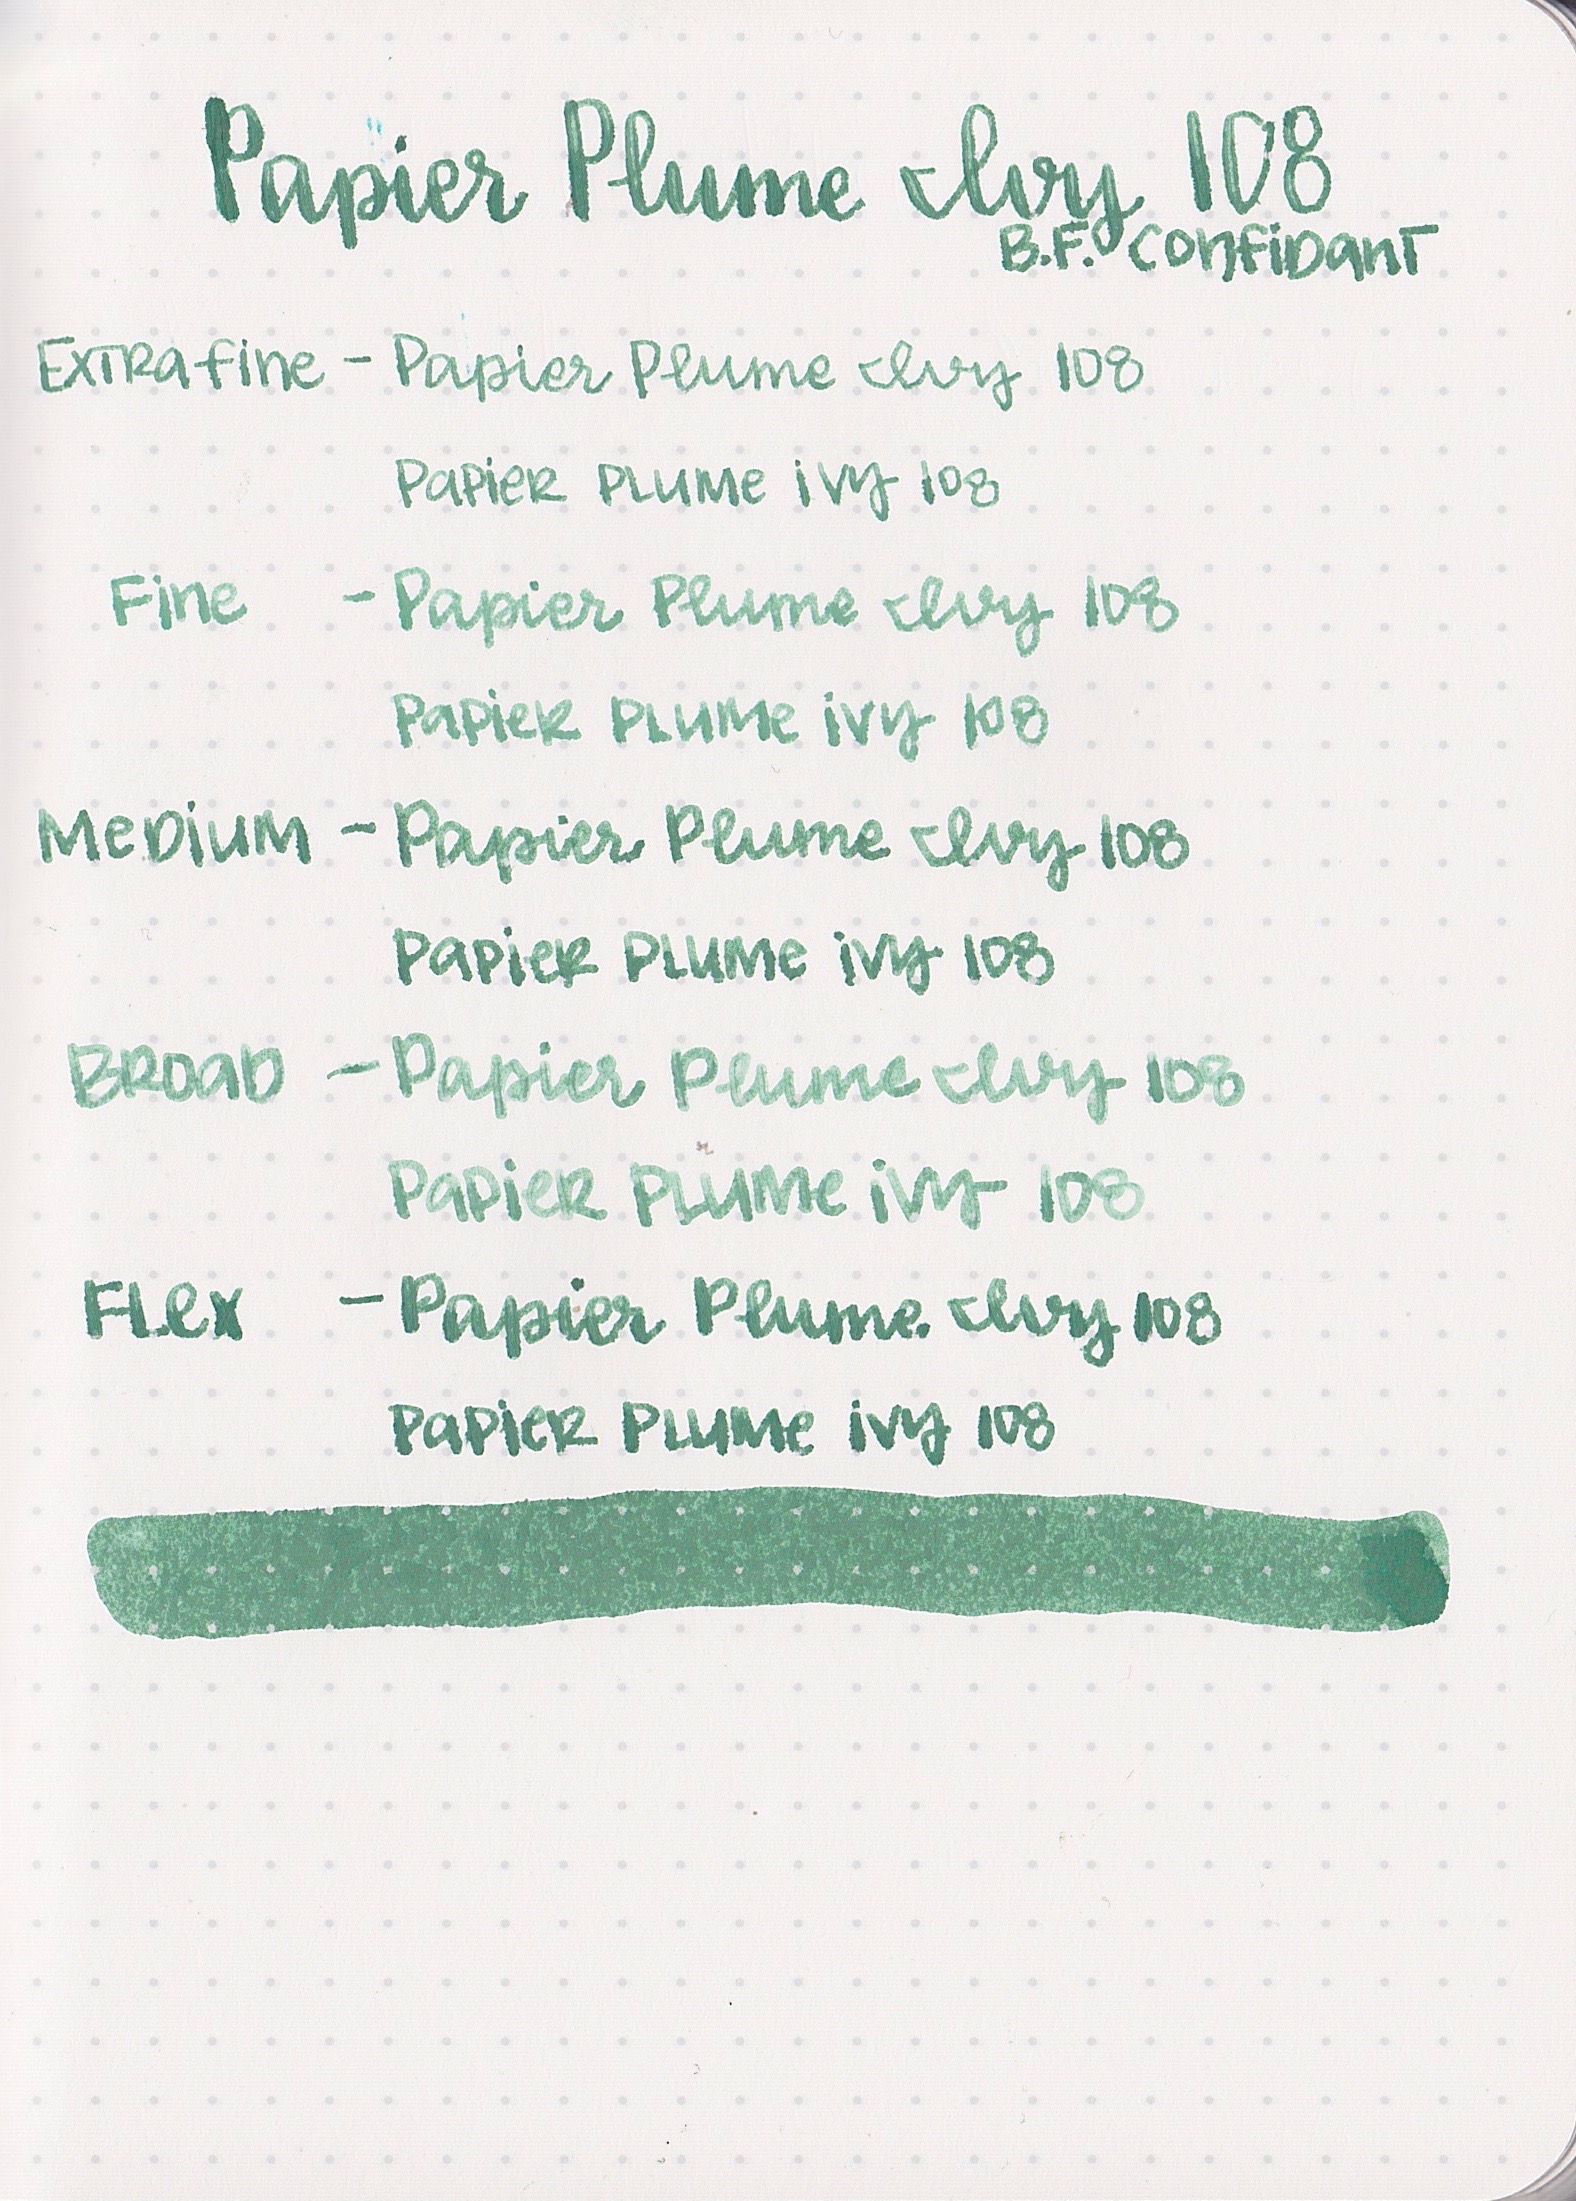 Papier Plume Ivy 108
B.F. Confidant
Extra fine - Papier Plume Ivy 108
Papier Plume ivy 108
Fine - Papier Plume Ivy 108
Papier Plume ivy 108
Medium - Papier Plume Ivy 108
Papier Plume ivy 108
Broad - Papier Plume Ivy 108
Papier Plume ivy 108
Flex - Papier Plume. Ivy 108
Papier Plume ivy 108